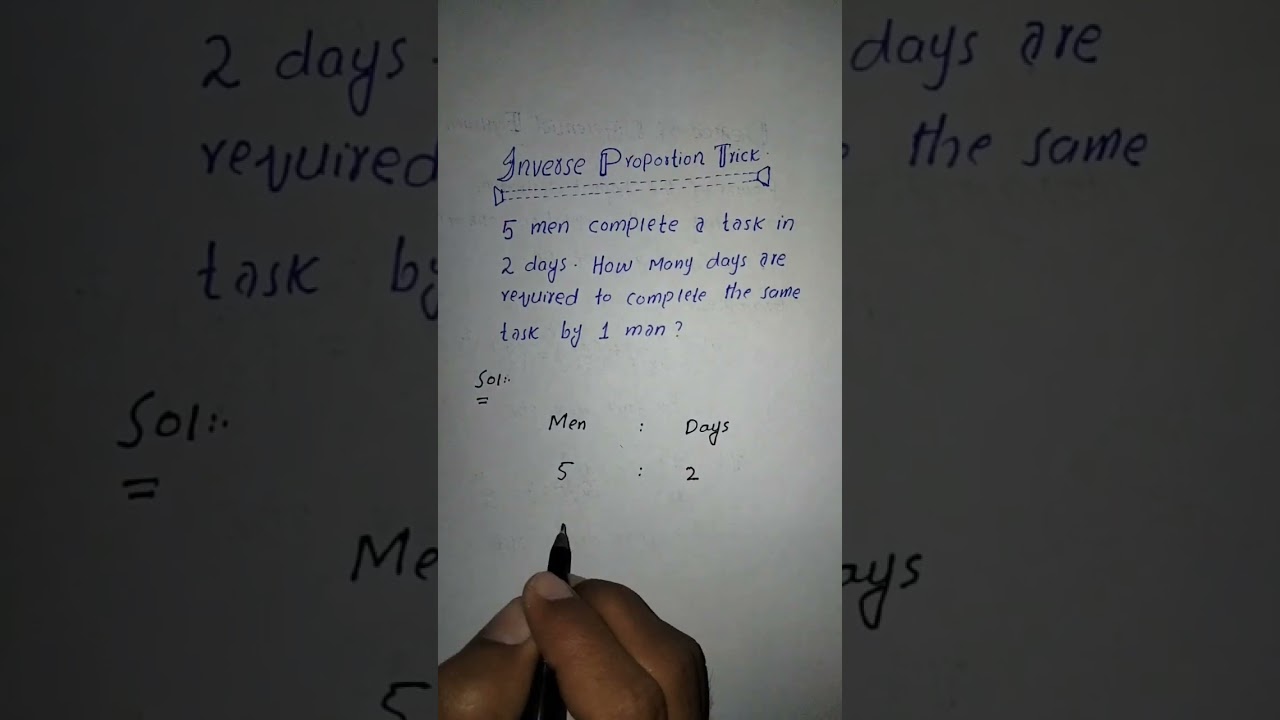 Inverse Proportion Trick.
5 men complete a task in
2 days. How Many days are
required to complete the same
task by 1 man?
Sol:-
Men : Days
5 : 2